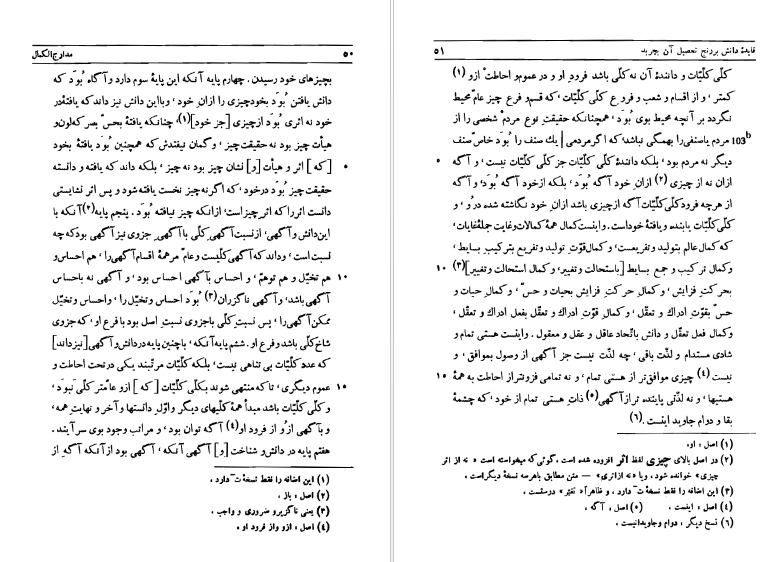 ۵۰ مدارج‌الکمال
بچیزهای خود رسیدن. چهارم پایه آنکه این پایهٔ سوم دارد و آگاه بُوَد که
دانش یافتن بُوَد بخودچیزی را ازان خود، وبااین دانش نیز داند که یافته‌در
خود نه اثری بُوَد ازچیزی [جز خود](۱)، چنانکه یافتهٔ بحسّ بصر که‌لون‌و
هیأت چیز بود نه حقیقت‌چیز، و گمان نیفتدش که همچنین بُوَد یافتهٔ بخود
[که] اثر و هیأت [و] نشان چیز بود نه چیز، بلکه داند که یافته و دانسته ۰
حقیقت‌چیز بُوَد درخود، که اگرنه‌چیز نخست یافته شود و پس اثر نشایستی
دانست اثرراکه اثرچیزاست، ازآنکه چیز نیافته بُوَد. پنجم پایه(۲) آنکه با
این‌دانش‌وآگهی، ازنسبت‌آگهی کلّی با‌آگهی جزوی نیزآگهی بودکه‌چه
نسبت است، وداند که‌آگهی‌کلّیست وعام مرهمهٔ اقسام‌آگهی‌را، هم احساس‌و
هم تخیّل و هم توهّم، و احساس بآگهی احساس بود، و آگهی نه باحساس ۱۰
آگهی‌باشد، وآگهی ناگزران(۳) بُوَد احساس وتخیّل را، واحساس وتخیّل
ممکن‌آگهی‌را، پس نسبت کلّی باجزوی نسبت اصل بود بافرع او، که‌جزوی
شاخ‌کلّی باشد وفرع او. ششم پایه‌آنکه، باچنین پایه‌دردانش‌وآگهی [نیزداند]
که عدد کلّیات بی تناهی نیست، بلکه کلّیات مرتّبند یکی درتحت احاطت و
عموم دیگری، تاکه منتهی شوند بکلّی کلّیات [که] ازو عامّ‌تر کلّی نبوَد، ۱۵
و کلّی کلّیات باشد مبدأ همهٔ کلّیهای دیگر واوّل دانستها و آخر و نهایت همه،
و بآگهی ازو از فرود او(۴) آگه توان بود، و مراتب وجود بوی سر آیند.
هفتم پایه در دانش‌و شناخت [و] آگهی آنکه، آگهی بود ازآنکه آگه از
(۱) این اضافه را فقط نسخهٔ ت دارد.
(۲) اصل: باز.
(۳) یعنی ناگزیر و ضروری و واجب.
(۴) اصل: ازو واز فرود او.
فایدهٔ دانش بررنج تحصیل آن بچربد ۵۱
کلّی کلّیات و دانندهٔ آن نه کلّی باشد فرود او و درعموم‌و احاطت ازو (۱)
کمتر، و از اقسام و شعب و فروع کلّی کلّیات، که قسم‌و فرع چیز عامّ محیط
نگردد بر آنچه محیط بوی بُوَد، همچنانکه حقیقت نوع مردم شخصی را از
103ᵇ مردم یاصنفی‌را بهمگی نباشد، که اگرمردمی | یك صنف را بُوَد خاصّ صنف
دیگر نه مردم بود، بلکه دانندهٔ کلّی کلّیات جز کلّی کلّیات نیست، و آگه ۰
ازان نه از چیزی (۲) ازان خود آگه بُوَد، بلکه ازخود آگه بُوَد، و آگه
از هرچه فرودکلّی‌کلّیات آگه‌ازچیزی باشد ازان خود نگاشته شده درو، و
کلّی کلّیات یابنده و یافتهٔ خوداست. واینست‌کمال همهٔ کمالات‌وغایت‌جملهٔ‌غایات،
که‌کمال‌عالم بتولید وتفریعست، وکمال‌قوّت تولید وتفریع بترکیب بسایط،
وکمال ترکیب و جمع بسایط [باستحالت وتغییر، وکمال استحالت وتغییر](۳) ۱۰
بحرکت فزایش، و کمال حرکت فزایش بحیات و حسّ، و کمال حیات و
حسّ بقوّت ادراك و تعقّل، و کمال قوّت ادراك و تعقّل بفعل ادراك و تعقّل،
وکمال فعل تعقّل و دانش باتّحاد عاقل و عقل و معقول. و اینست هستی تمام و
شادی مستدام و لذّت باقی، چه لذّت نیست جز آگهی از وصول بموافق، و
نیست (۴) چیزی موافق‌تر از هستی تمام، و نه تمامی فزونتراز احاطت به همهٔ ۱۵
هستیها، و نه لذّتی پاینده تر ازآگهی (۵) ذات هستی تمام از خود، که چشمهٔ
بقا و دوام جاوید اینست. (۶)
(۱) اصل: او.
(۲) در اصل بالای چیزی لفظ اثر افزوده شده است، گوئی که میخواسته است «نه از اثر
چیزی» خوانده شود، ویا «نه ازاثری» — متن مطابق باهرسه نسخهٔ دیگراست.
(۳) این اضافه را فقط نسخهٔ ت دارد، و ظاهراً «تغیّر» درستست.
(۴) اصل: اینست. (۵) اصل: آگه.
(۶) نسخ دیگر: دوام وجاویدانیست.